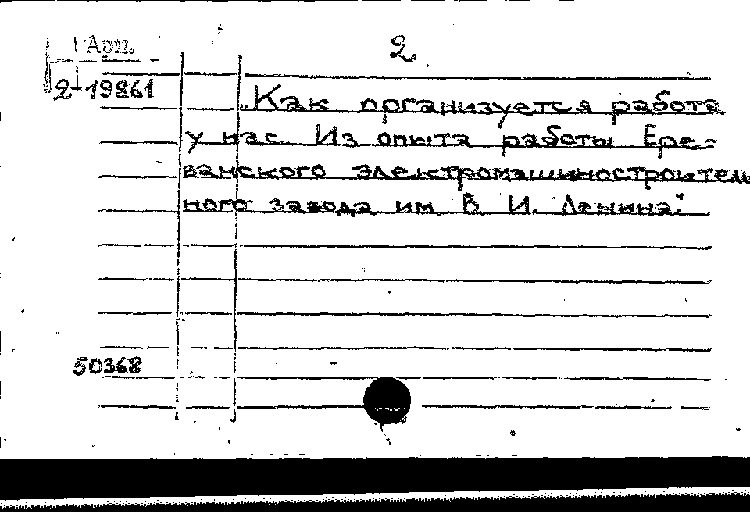 Арм.
2
2-19861
„Как организуется работа
у нас. Из опыта работы Ере-
ванского электромашиностроитель
ного завода им В. И. Ленина."
50368